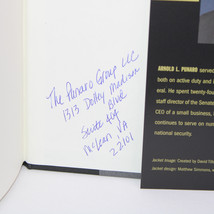 The Punaro Group LLC
1313 Dolley Madison
Blvd
Suite 404
McLean, VA
22101
ARNOLD L. PUNARO served
both on active duty and i
eral. He spent twenty-four
staff director of the Senate
CEO of a small business, 
continues to serve on num
national security.
Jacket image: Created by David Fitz
Jacket design: Matthew Simmons, w